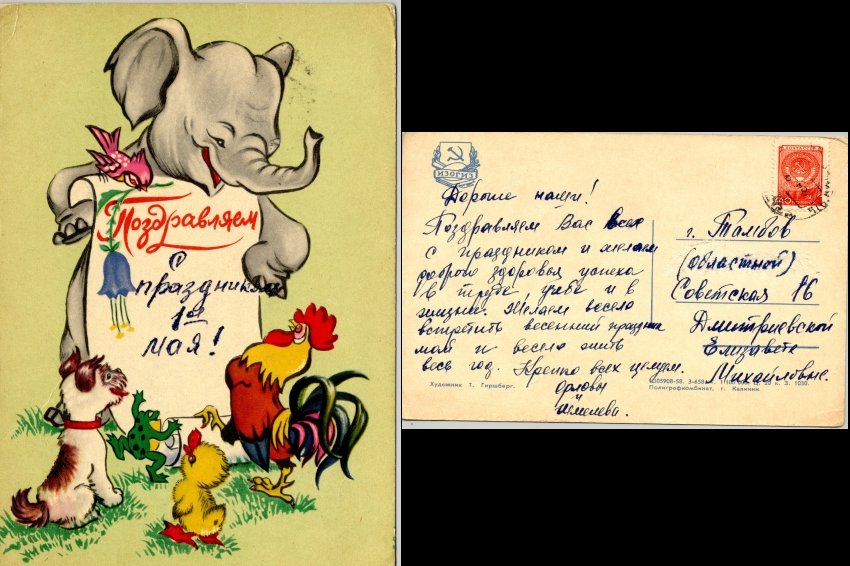 Поздравляем
с
праздником
1ое
мая!
ИЗОГИЗ
Дорогие наши!
Поздравляем Вас всех
с праздником и желаем
доброго здоровья успеха
в труде, учебе и в
жизни. Желаем весело
встретить весенний праздник
мая и весело жить
весь год. Крепко всех целуем.
Орловы
и
Художник Т. Гиршберг.
ПОЧТА СССР
г. Тамбов
(областной)
Советская 16
Дмитриевской
Елизавете
Михайловне.
Полиграфкомбинат, г. Калинин.